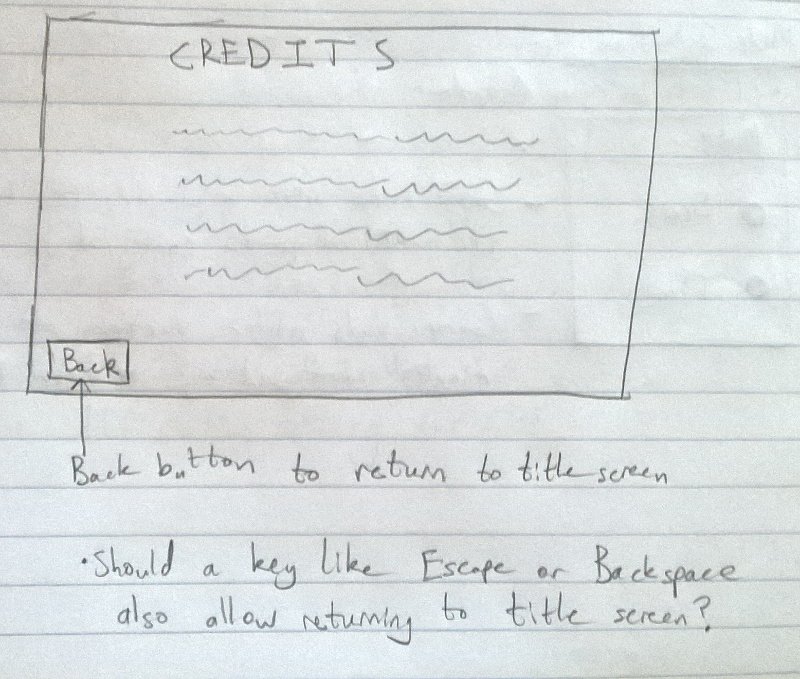 CREDITS
Back
Back button to return to title screen
• Should a key like Escape or Backspace
also allow returning to title screen?